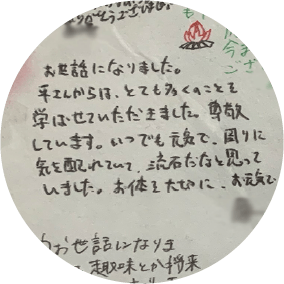 お世話になりました。
からは、とても多くのことを
学ばせていただきました。尊敬
しています。いつでも元気で、周りに
気を配れていて、流石だなと思って
いました。お体を大切に、お元気で
お世話になりま
趣味とか将来